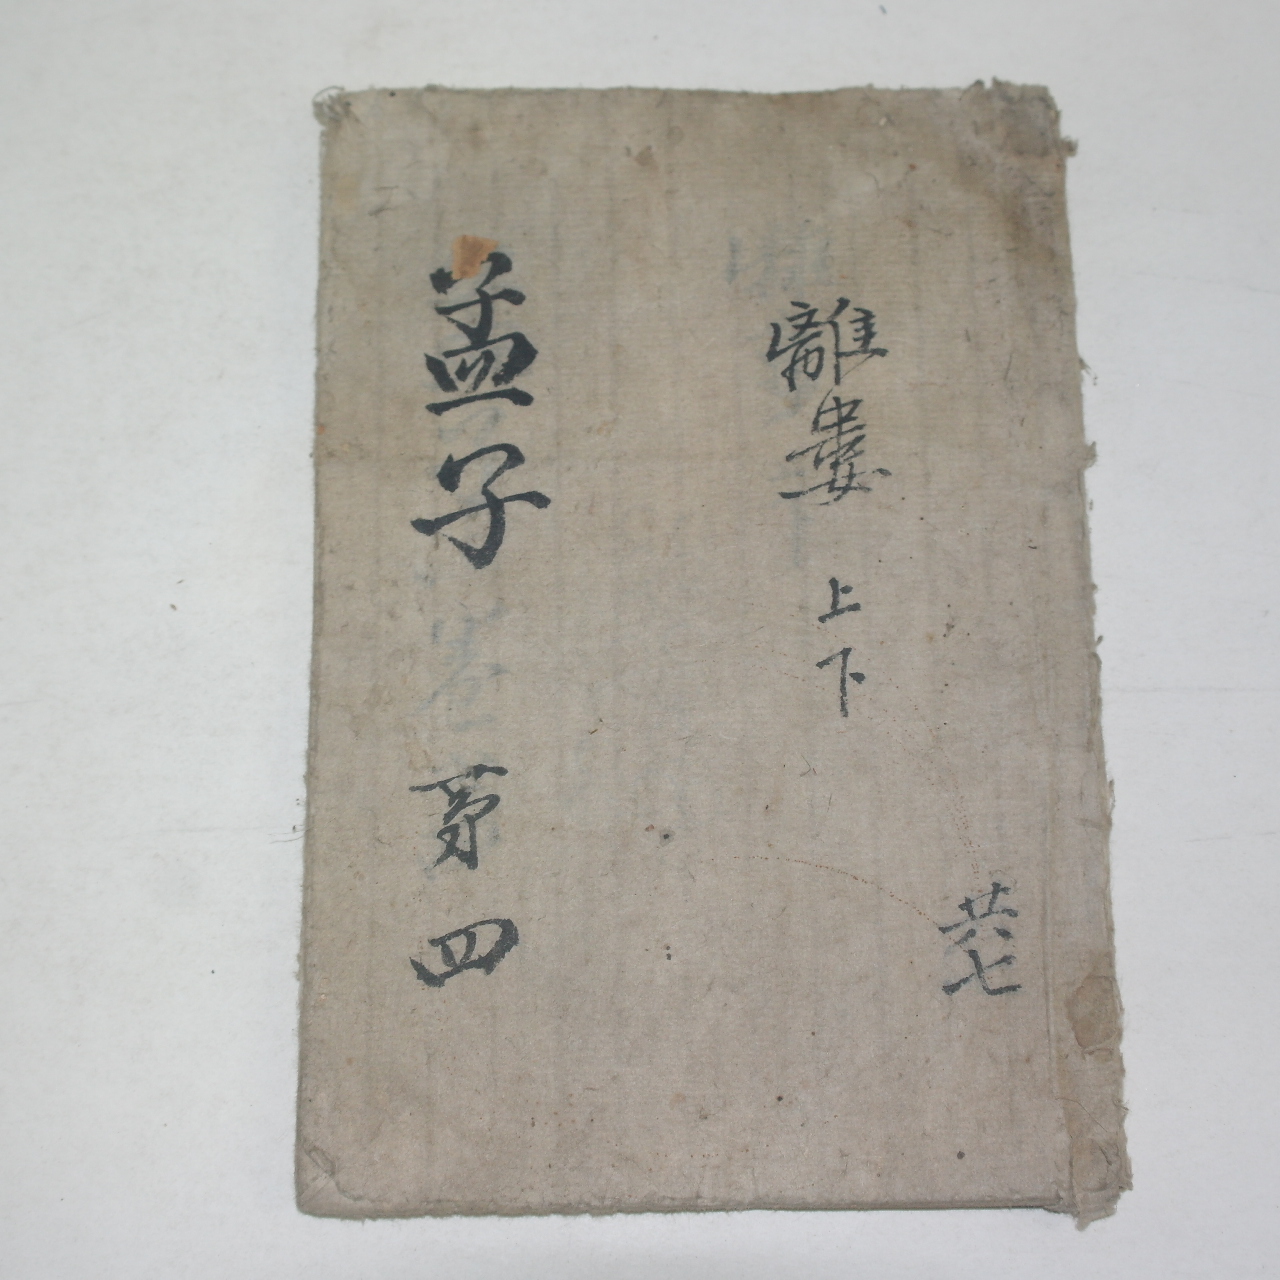 共七
離婁 上下
孟子 第四